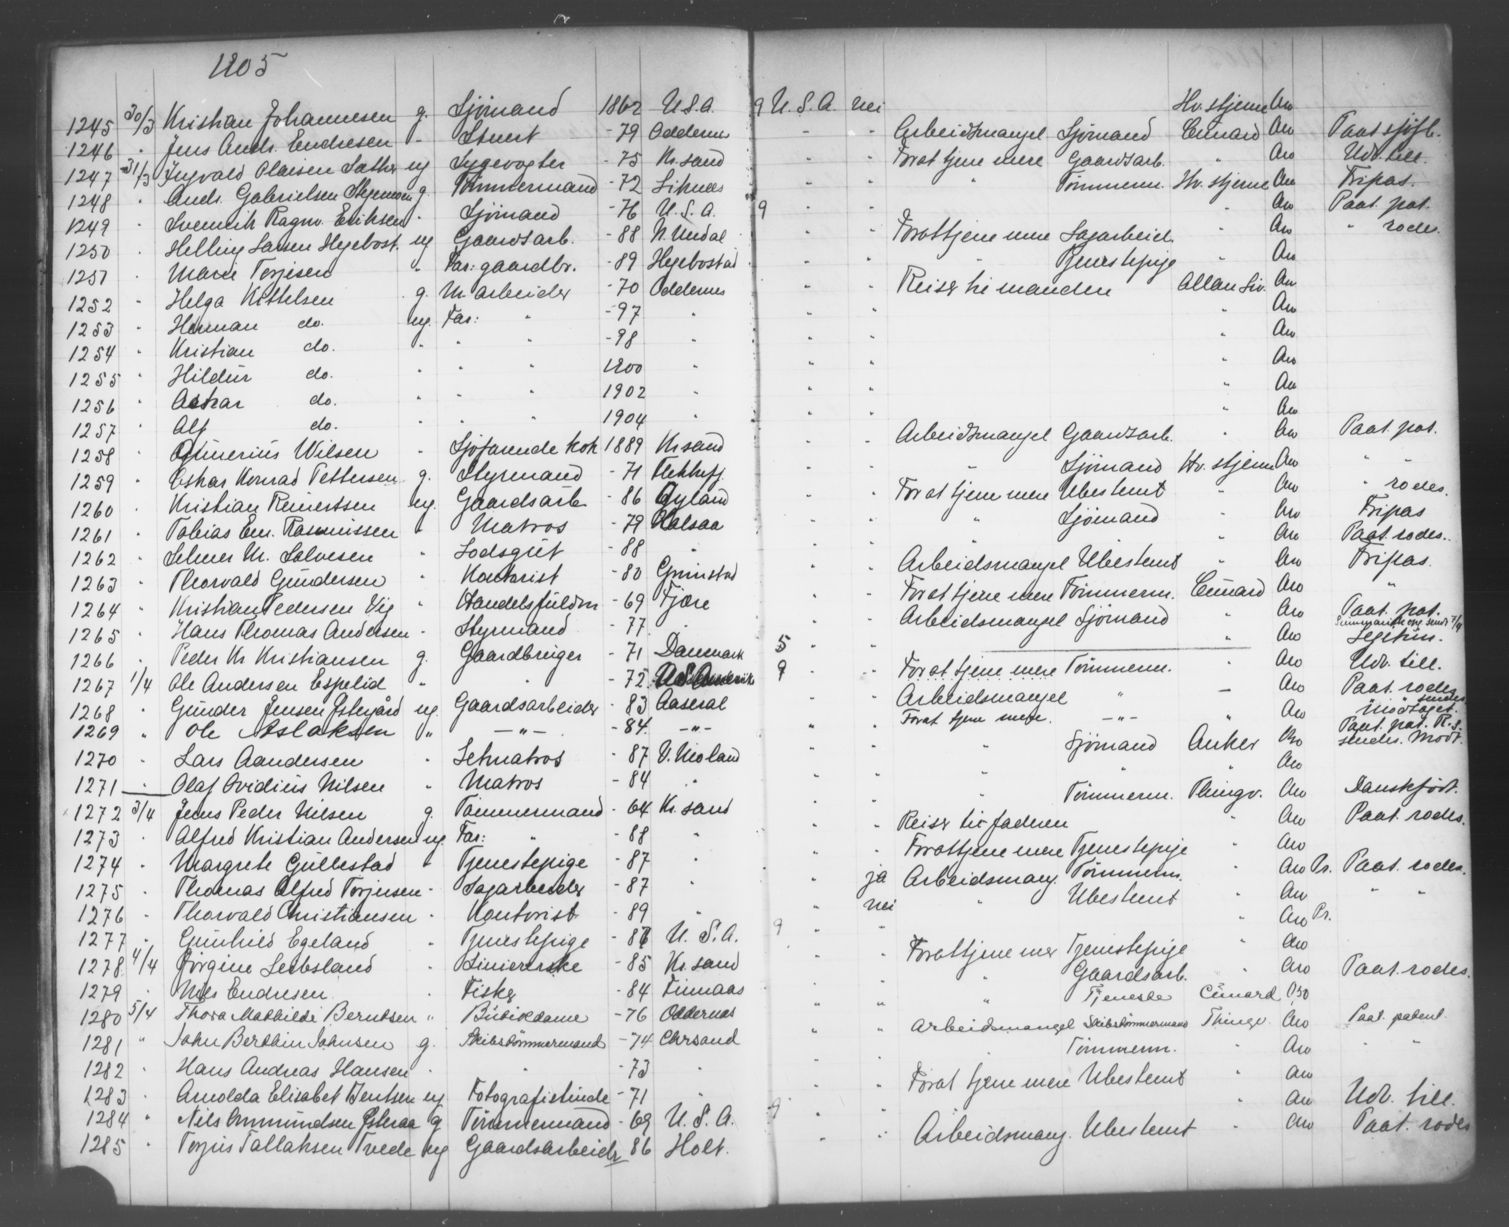 1905
1245 30/3 Kristian Johannesen g. Sjömand 1862 U.S.A. 9 U.S.A. nei Hv. stjerne Aro
1246 " Jens Andr. Endresen " Stuert -79 Oddernes " " Arbeidsmangel Sjömand Cunard Aro Paat. sjöfb.
1247 31/3 Ingvald Olaisen Sæther ug Sygevogter -75 Kr.sand " " Forat tjene mere Gaardsarb. " Aro Udv. till.
1248 " Andr. Gabrielsen g. Tömmermand -72 Liknes " " " Tömmerm. Hv. stjerne Aro Fripas.
1249 " Ragnv. Eriksen " Sjömand -76 U.S.A. 9 " " " Aro Paat. pat.
1250 " Larsen Hegebost. ug Gaardsarb. -88 N. Undal " " Forat tjene mere Sagarbeid. " Aro " rodes.
1251 " Marie Torjesen " Far: gaardbr. -89 Hegebostad " " " Tjenestepige " Aro
1252 " Helga Kittelsen g. M. arbeider -70 Oddernes " " Reiser til manden Allan Liv. Aro
1253 " Herman do. ug. Far: " -97 " " " " Aro
1254 " Kristian do. " " " -98 " " " " Aro
1255 " Hildur do. " " " 1900 " " " " Aro
1256 " Askar do. " " " 1902 " " " " Aro
1257 " Alf do. " " " 1904 " " " " Aro
1258 " Gunerius Nilsen " Sjöfarende kok 1889 Kr.sand " " Arbeidsmangel Gaardsarb. " Aro Paat. pat.
1259 " Oskar Konrad Pettersen g. Styrmand -71 Flekkefj. " " " Sjömand Hv. stjerne Aro " "
1260 " Kristian Reinertsen ug. Gaardsarb -86 Gyland " " Forat tjene mere Ubestemt " Aro " rodes.
1261 " Tobias Em. Rasmussen " Matros -79 Halsaa " " " Sjömand " Aro Fripas
1262 " Selmer M. Salvesen " Lodsgut -88 " " " " " " Aro Paat. rodes.
1263 " Thorvald Gundersen " Kontorist -80 Grimstad " " Arbeidsmangel Ubestemt " Aro Fripas.
1264 " Kristian Pedersen Vig " Handelsfuldm -69 Fjære " " Forat tjene mere Tömmerm. Cunard Aro "
1265 " Hans Thomas Andersen " Styrmand -77 " " " Arbeidsmangel Sjömand " Aro Paat. pat.
1266 " Peder Kr Kristiansen g. Gaardbruger -71 Danmark 5 " " " Aro Legitim.
1267 1/4 Ole Andersen Espelid " " -72 9 " " Forat tjene mere Tömmerm. " Aro Udv. till.
1268 " Gunder Jensen Östegård ug. Gaardsarbeider -83 Aaseral " " Arbeidsmangel " — Aro Paat. rodes sendes modtaget.
1269 " Ole Aslaksen " —"— -84 —"— " " Forat tjene mere. —"— " Aro Paat. pat. R.S. sendes. Modt.
1270 " Lars Aandersen " Letmatros -87 V. Moland " " " Sjömand Anker Aro
1271 " Olaf Ovidius Nilsen " Matros -84 " " " " " " Aro
1272 3/4 Jens Peder Nilsen g. Tömmermand -64 Kr. sand " " " Tömmerm. Thingv. Aro Danskfödt.
1273 " Alfred Kristian Andersen ug. Far: " -88 " " " Reiser til faderen " Aro Paat. rodes.
1274 " Margrete Gullestad " Tjenestepige -87 " " " Forat tjene mere Tjenestepige " Aro
1275 " Thomas Alfred Torjusen " Sagarbeider -87 " " ja Arbeidsmang. Tömmerm. " Aro Pr. Paat. rodes.
1276 " Thorvald Christiansen " Kontorist -89 " " nei " Ubestemt " Aro " "
1277 " Gunhild Egeland " Tjenestepige -86 U.S.A. 9 " " " Aro Pr.
1278 4/4 Jörgine Seibsland " Liniererske -85 Kr. sand " " Forat tjene mer Tjenestepige " Aro
1279 " Nils Endresen " Fisker -84 Finnaas " " " Gaardsarb. " Aro Paat. rodes.
1280 5/4 Thora Mathilde Berntsen " Butikdame -76 Oddernes " " " Tjeneste Cunard Aro
1281 " John Berthin Johnsen g. Skibstömmermand -74 Chrsand " " Arbeidsmangel Skibstömmermand Thingv Aro Paat. patent
1282 " Hans Andreas Hansen " " -73 " " " " Tömmerm. " Aro " "
1283 " Arnolda Elisabet Berntsen ug Fotografistinde -71 " " " Forat tjene mere Ubestemt " Aro
1284 " Nils Ommundsen g Tömmermand -69 U.S.A. 9 " " " Aro Udv. till.
1285 " Torjus Tallaksen Tvede ug Gaardsarbeider -86 Holt. " " Arbeidsmang. Ubestemt " Aro Paat. rodes